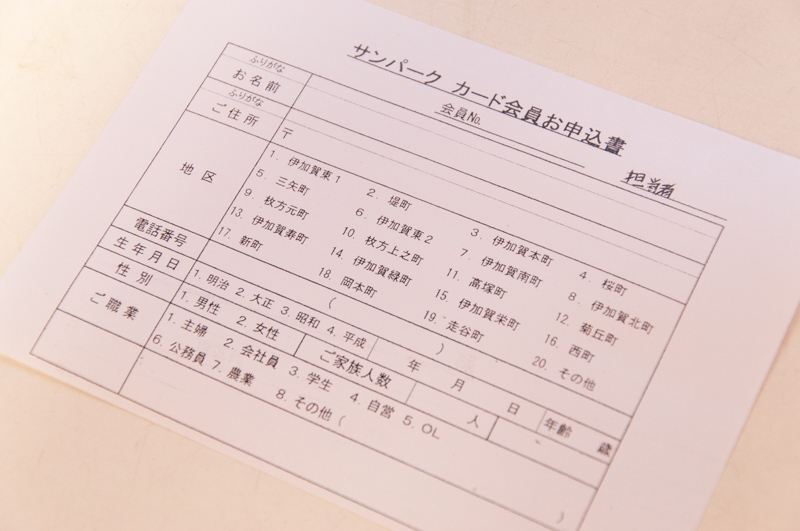 サンパーク カード会員お申込書
会員No.
担当者
ふりがな
お名前
ふりがな
ご住所
〒
地区
1. 伊加賀東1 2. 堤町 3. 伊加賀本町 4. 桜町
5. 三矢町 6. 伊加賀東2 7. 伊加賀南町 8. 伊加賀北町
9. 枚方元町 10. 枚方上之町 11. 高塚町 12. 菊丘町
13. 伊加賀寿町 14. 伊加賀緑町 15. 伊加賀栄町 16. 西町
17. 新町 18. 岡本町 19. 走谷町 20. その他
電話番号 ( )
生年月日 1. 明治 2. 大正 3. 昭和 4. 平成 年 月 日 年齢 歳
性別 1. 男性 2. 女性 ご家族人数 人
ご職業 1. 主婦 2. 会社員 3. 学生 4. 自営 5. OL
6. 公務員 7. 農業 8. その他 ( )